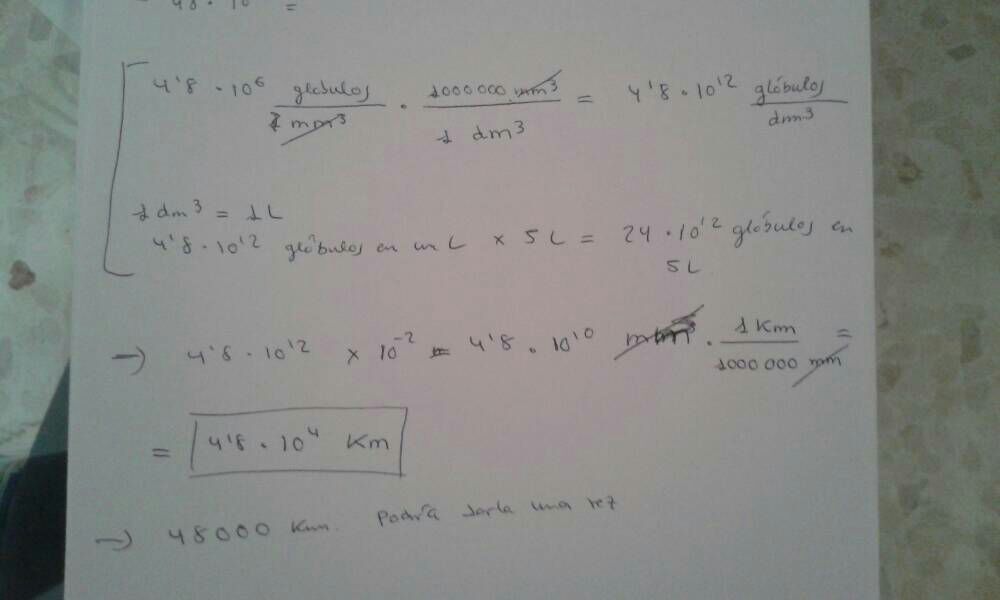 48 · 10 =
4'8 · 10⁶ globulos / 1 mm³ · 1000 000 mm³ / 1 dm³ = 4'8 · 10¹² glóbulos / dm³
1 dm³ = 1L
4'8 · 10¹² glóbulos en un L x 5 L = 24 · 10¹² glóbulos en
5L
→ 4'8 · 10¹² x 10⁻² = 4'8 · 10¹⁰ mm · 1 Km / 1000 000 mm =
= 4'8 · 10⁴ Km
→ 48000 Km. Podría darla una vez